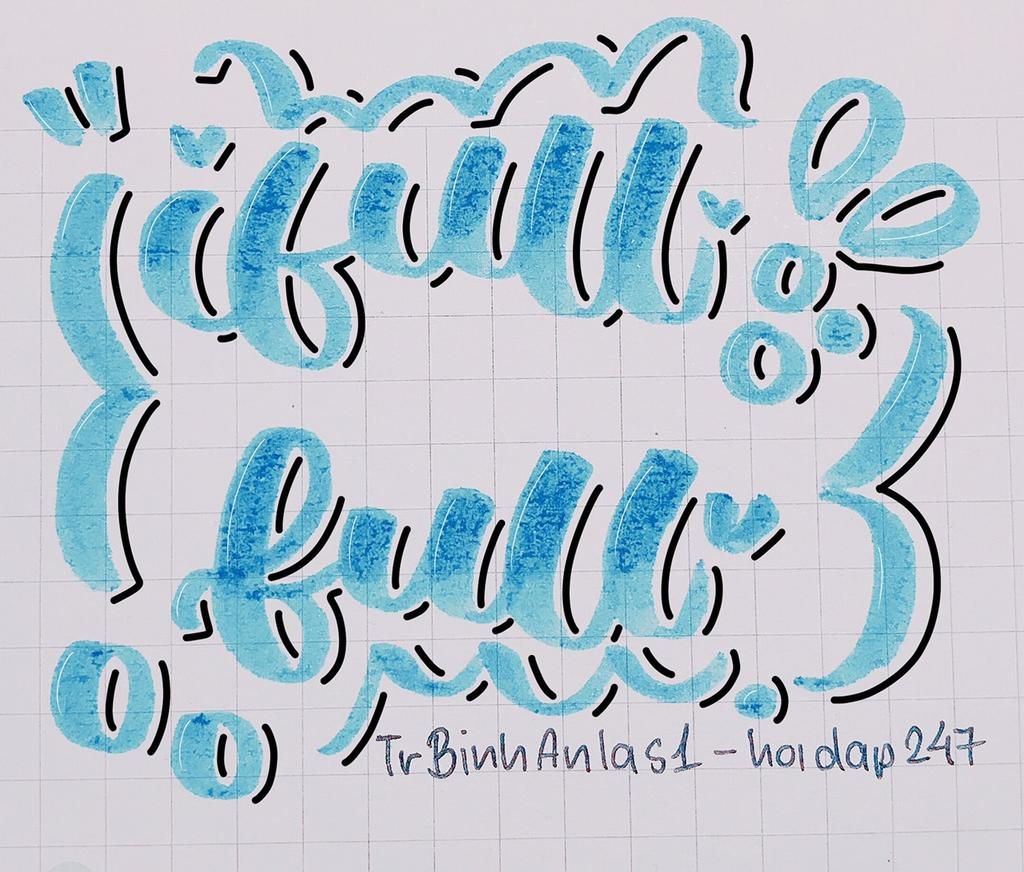 ifull
full
TrBinhAnlas1 - hoidap247